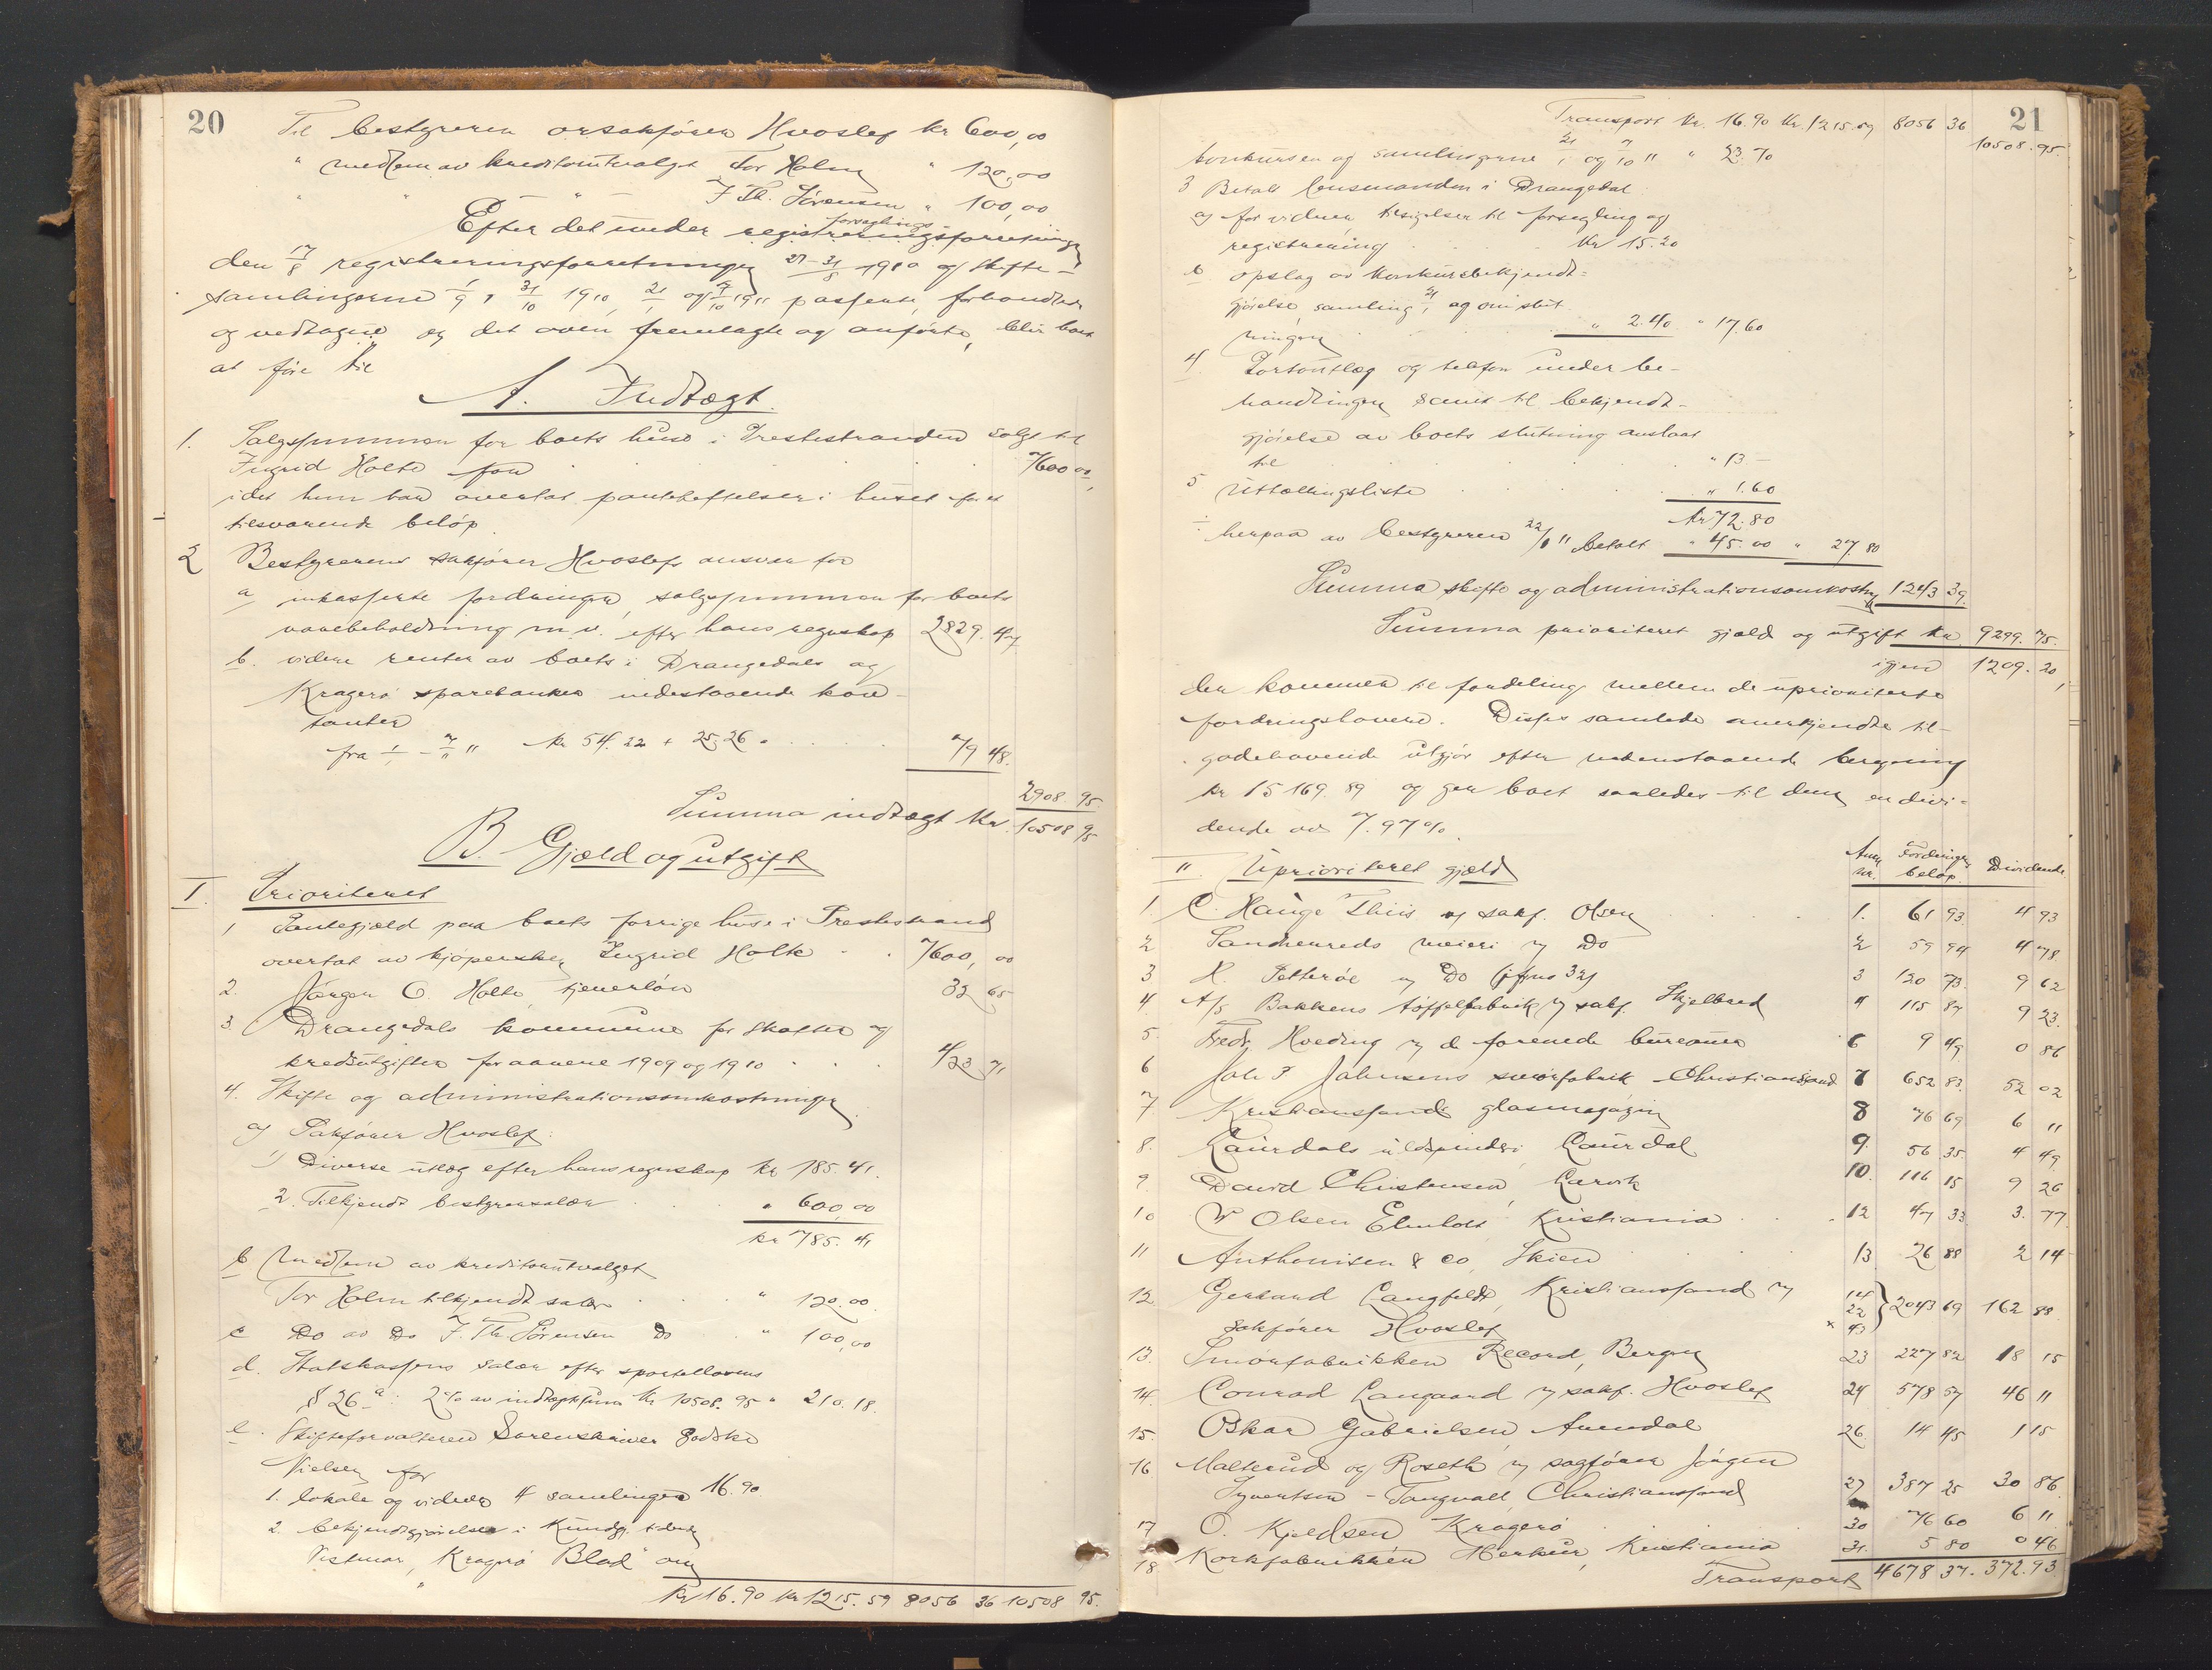 20
Til bestyreren orsakfører Hvoslef kr 600,00
" medlem av kreditorutvalget Tor Holm " 120,00
" " " J Th. Sørensen " 100,00
forseglings
Efter det under registreringsforretningen
den 17/8 registreringsforretningen 27-31/8 1910 og skifte-
samlingerne 1/9, 31/10 1910, 21/1 og 7/10 1911 passerte, forhandlede
og vedtagne og det oven fremlagte og anførte, blir boet
at føre til
A. Indtægt.
1. Salgssummen for boets huse i Prestestranden solgt til
Ingrid Holte for 7600 00,
idet hun har overtat pantehæftelser i huset for et
tilsvarende beløp.
2 Bestyrerens sakfører Hvoslefs ansvar for
a inkasserte fordringer, salgssummen for boets
varebeholdning m.v. efter hans regnskap 2829. 47
b. videre renter av boets i Drangedals og
Kragerø sparebanker indestaaende kon-
tanter
fra 1/1 - 7/11 " kr 54.22 + 25,26 79 48.
2908 95.
Summa indtægt kr. 10508 95
B. Gjæld og utgift
I. Prioriteret
1 Pantegjæld paa boets forrige huse i Prestestrand
overtat av kjøpersken Ingrid Holte 7600, 00
2. Jørgen O. Holte, tjenerløn 32 65
3. Drangedals kommune for skatter og
kredsutgifter for aarene 1909 og 1910 423 71
4. Skifte og administrationsomkostninger
a) Sakfører Hvoslef:
1) Diverse utlæg efter hans regnskap kr 185.41.
2. Tilkjendt bestyrersalær " 600,00
kr 785.41
b Medlem av kreditorutvalget
Tor Holm tilkjendt salær " 120.00.
c Do av Do J. Th. Sørensen Do " 100,00
d. Statskassens salær efter sportellovens
§ 26 a: 2% av indtægtssum kr 10508.95 " 210.18.
e. Skifteforvalteren Sorenskriver Godske
Nielsen for
1. lokale og vidner 4 samlinger 16.90
2. bekjendtgjørelser i Kundgj. tidende
Vestmar, Kragerø Blad" om
kr 16.90 kr 1215.59 8056 36 10508 95.
21
Transport kr. 16.90 kr. 1215.59 8056 36
10508.95.
konkursen og samlingerne 21/1 og 7/10 " " 23.70
3 Betalt lensmanden i Drangedal
a) for vidner, tilsigelser til forsegling og
registrering kr 15.20
b opslag av konkursbekjendt=
gjørelse, samling 21/1 og om slut
ningen " 2.40 " 17.60
4 Portoutlæg og telefon under be-
handlingen samt til bekjendt-
gjørelse av boets slutning anslaat
til " 13 -
5 Uttællingsliste " 1.60
kr 72.80
÷ herpaa av bestyreren 22/8 " betalt " 45.00 " 27.80
Summa skifte og administrationsomkostn 1243 39.
Summa prioriteret gjæld og utgift kr 9299.75.
igjen 1209.20,
der kommer til fordeling mellem de uprioriterte
fordringshavere. Disses samlede anerkjendte til-
godehavende utgjør efter nedenstaaende beregning
kr 15169.89 og gir boet saaledes til dem en divi-
dende av 7.97%.
II. Uprioriteret gjæld Anm nr. Fordringens beløp. Dividende.
1. C. Hauge Thiis v/ sakf. Olsen 1. 61 93 4 93
2 Sandhereds meieri v/ Do 2 59 94 4 78
3 H. Petterøe v/ Do (jfr no 32) 3 120 73 9 62
4. A/S Bakkens tøffelfabrik v/ sakf. Skjelbred 4 115 87 9 23
5. Fredr. Hveding v/ de forenede bureauer 6 9 49 0 86
6 Joh P Johnsens smørfabrik Christianssand 7 652 83. 52 02
7 Kristiansands glasmagazin 8 76 69 6 11
8. Laurdals uldspinderi Laurdal 9. 56 35. 4 49
9 David Christensen, Larvik 10. 116 15 9 26
10 W Olsen Elmholt Kristiania 12 47 33 3. 77
11 Anthonisen & Co, Skien 13 26 88 2 14
12 Gerhard Langfeldt, Kristianssand v/
sakfører Hvoslef 14 22 × 43 } 2043 69 162 88
13. Smørfabrikken Record, Bergen 23 227 82 18 15
14. Conrad Langaard v/ sakf. Hvoslef 24 578 57 46 11
15. Oskar Gabrielsen, Arendal 26. 14 45 1 15
16 Malterud og Roseth v/ sagfører Jørgen
Syvertsen-Tangvall, Christianssand 27 387 25 30 86
17 O. Kjeldsen Kragerø 30 76 60 6 11
18 Korkfabrikken Merkur, Kristiania 31. 5 80 0 46
Transport 4678 37. 372.93